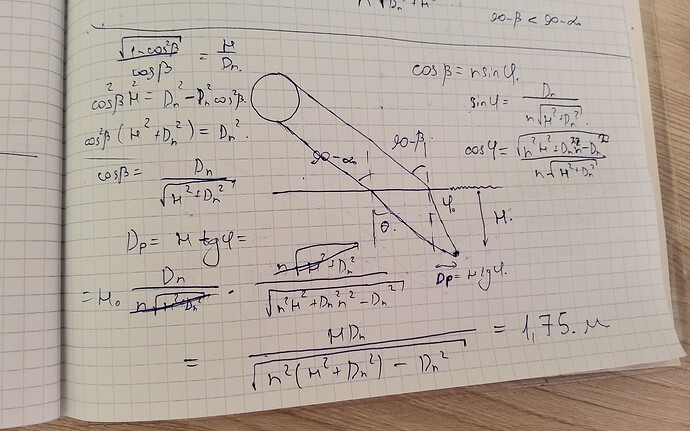 90-β < 90-α₀
√(1-cos²β) / cosβ = H / Dn.
cos²β H² = Dn² - Dn² cos²β.
cos²β (H² + Dn²) = Dn².
cosβ = Dn / √(H² + Dn²)
cosβ = n sinφ.
sinφ = Dn / n√(H² + Dn²).
cosφ = √(n²H² + Dn²n² - Dn²) / n√(H² + Dn²)
90-α₀
90-β
φ.
θ.
H.
Dp = H tgφ.
Dp = H tgφ =
= H. Dn / n√(H² + Dn²) · n√(H² + Dn²) / √(n²H² + Dn²n² - Dn²)
= HDn / √(n²(H² + Dn²) - Dn²) = 1,75. м